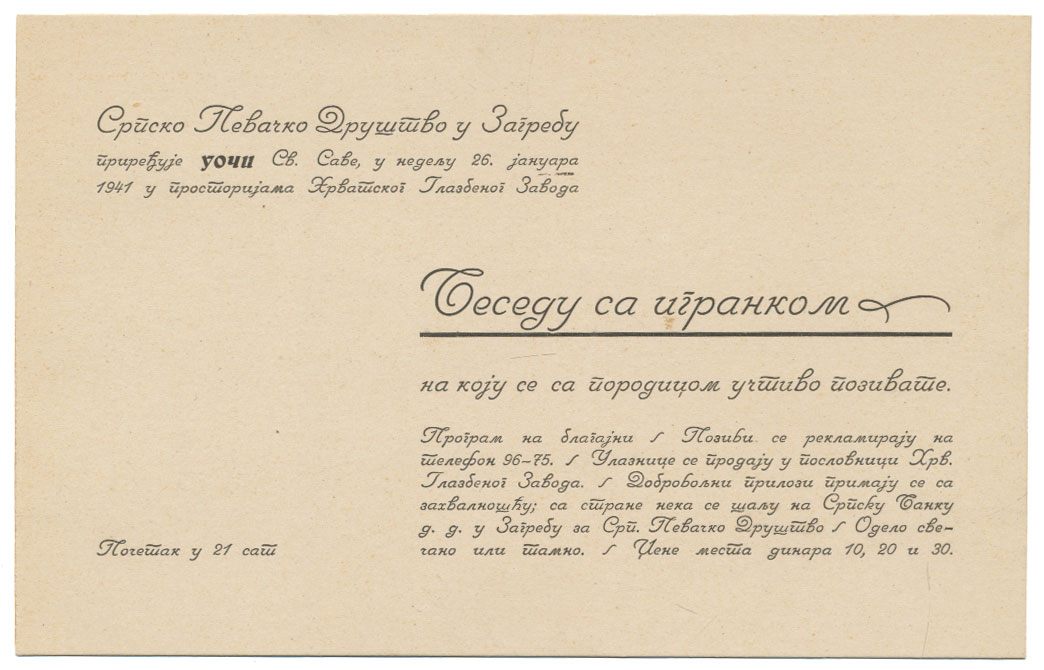 Српско Певачко Друштво у Загребу
приређује уочи Св. Саве, у недељу 26. јануара
1941 у просторијама Хрватског Глазбеног Завода
Беседу са игранком
на коју се са породицом учтиво позивате.
Програм на благајни / Позиви се рекламирају на
телефон 96-75. / Улазнице се продају у пословници Хрв.
Глазбеног Завода. / Добровољни прилози примају се са
захвалношћу; са стране нека се шаљу на Српску Банку
д. д. у Загребу за Срп. Певачко Друштво / Одело све-
чано или тамно. / Цене места динара 10, 20 и 30.
Почетак у 21 сат